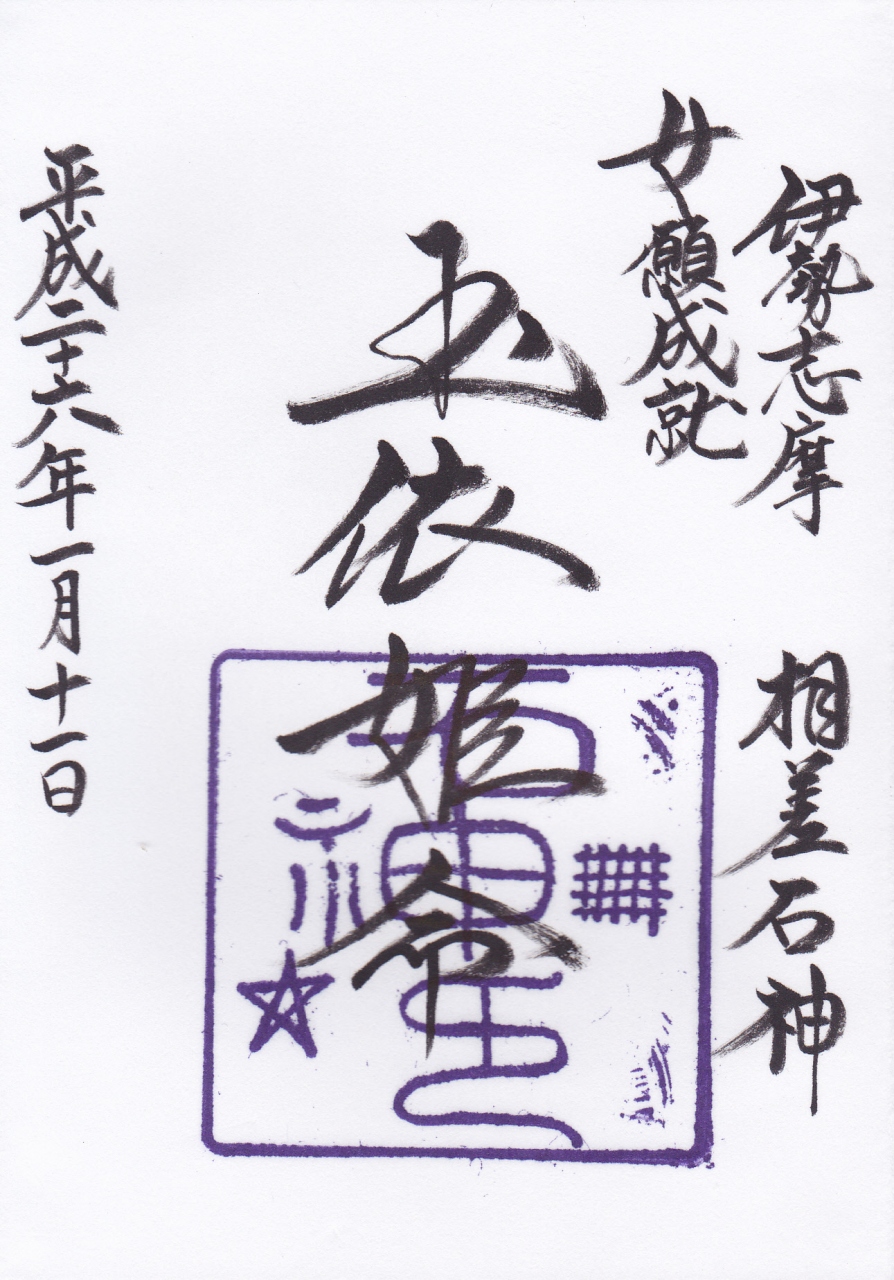 伊勢志摩　相差石神
女願成就
玉依姫命
石神印
平成二十六年一月十一日